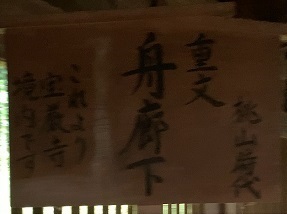 桃山時代
重文
舟廊下
これより
宝厳寺
境内です